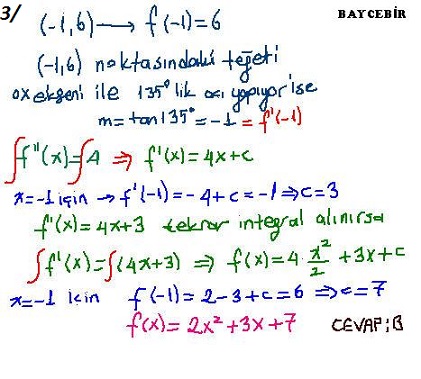 3/ (-1,6) → f(-1)=6 BAYCEBİR
(-1,6) noktasındaki teğeti
ox ekseni ile 135° lik açı yapıyor ise
m=tan135°=-1=f'(-1)
∫f''(x)=∫4 ⇒ f'(x)=4x+c
x=-1 için → f'(-1)=-4+c=-1⇒c=3
f'(x)=4x+3 tekrar integral alınırsa
∫f'(x)=∫(4x+3) ⇒ f(x)=4·x²/2+3x+c
x=-1 için f(-1)=2-3+c=6 ⇒c=7
f(x)=2x²+3x+7 CEVAP:B